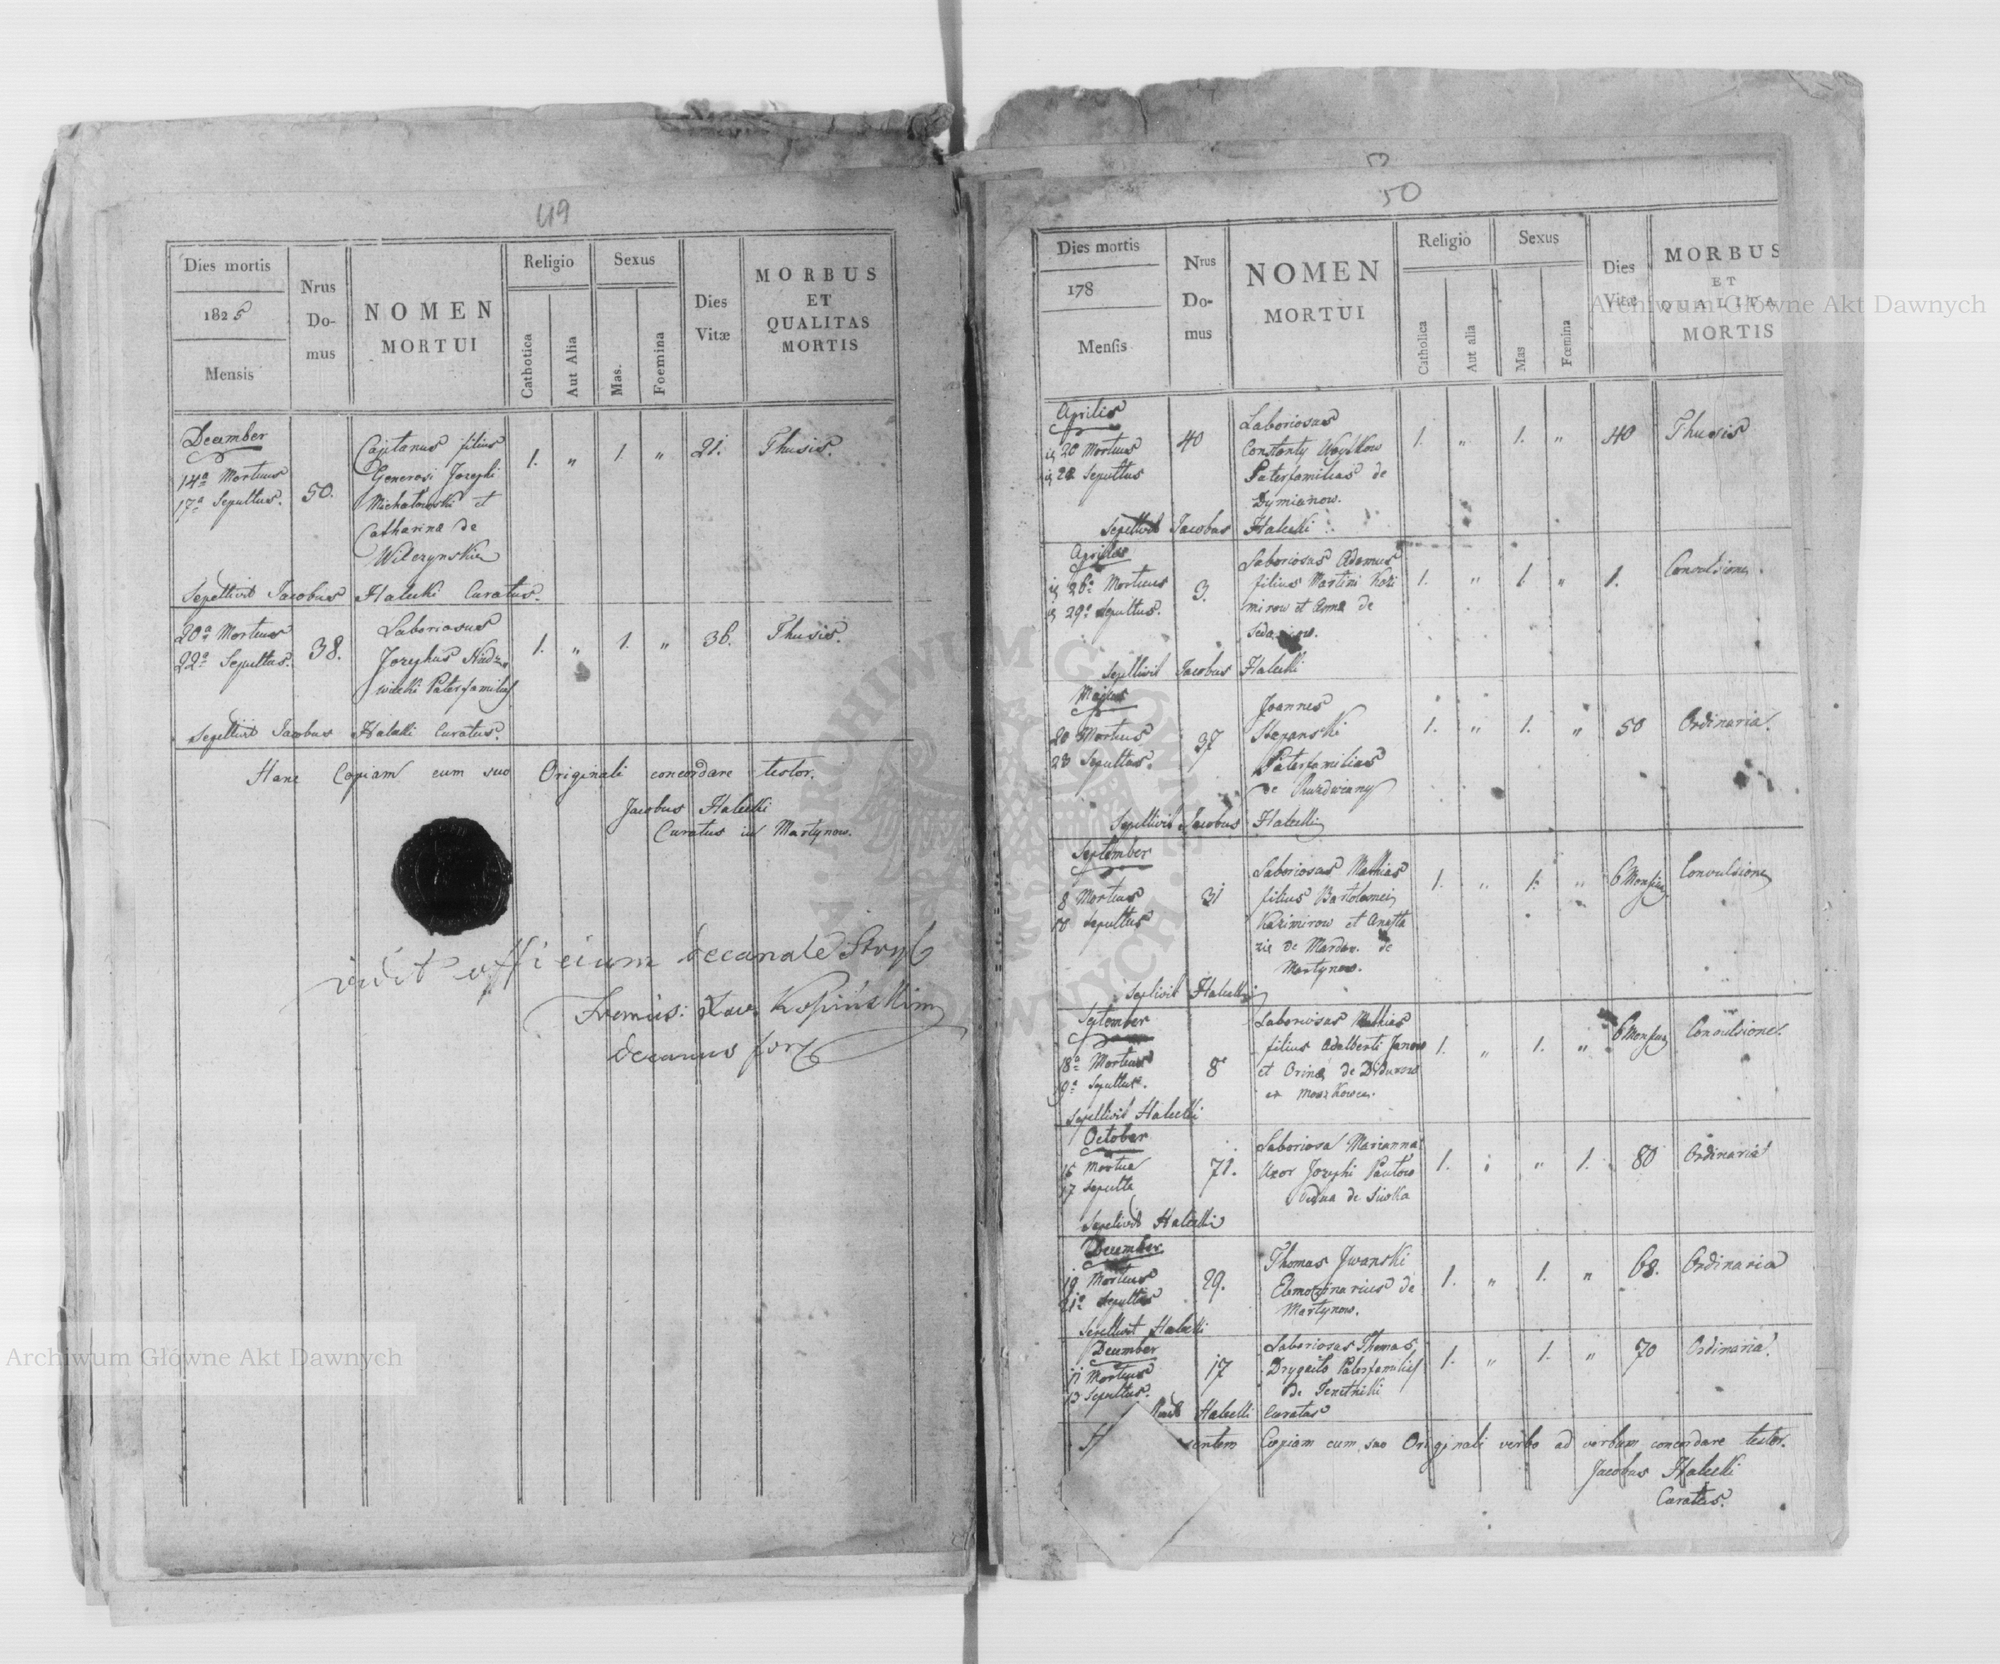 49
Dies mortis
1825
Mensis
Nrus
Do-
mus
NOMEN
MORTUI
Religio
Cathotica
Aut Alia
Sexus
Mas.
Foemina
Dies
Vitæ
MORBUS
ET
QUALITAS
MORTIS
December
14a Mortuus
17a Sepultus.
50.
Cajetanus filius
Generosi Josephi
Michałowski et
Catharinæ de
Wilczynskie
1. " 1. " 21. Thusis.
Sepellivit Jacobus Halecki Curatus.
20a Mortuus
22a Sepultus.
38.
Laboriosus
Josephus
wiecki Paterfamilias
1. " 1. " 36. Thusis.
Sepellivit Jacobus Halecki Curatus.
Hanc Copiam cum suo Originali concordare testor.
Jacobus Halecki
Curatus in Martynow.
vidit officium decanale Stryj
decanus
50
Dies mortis
178
Mensis
Nrus
Do-
mus
NOMEN
MORTUI
Religio
Catholica
Aut alia
Sexus
Mas
Fœmina
Dies
Vitæ
MORBUS
ET
QUALITA
MORTIS
Aprilis
20 Mortuus
22 Sepultus
40
Laboriosus
Constanty
Paterfamilias de
Dymianow.
1. " 1. " 40 Thusis
Sepellivit Jacobus Halecki
Aprilis
26a Mortuus
29a Sepultus.
3.
Laboriosus Adamus
filius Martini Kazi
mirow et Annæ de
1. " 1 " 1. Convulsione.
Sepellivit Jacobus Halecki
Majus
20 Mortuus
23 Sepultus.
37
Joannes
Stepanski
Paterfamilias
de
1. " 1. " 50 Ordinaria.
Sepellivit Jacobus Halecki
September
8 Mortuus
10 Sepultus
31
Laboriosus Mathias
filius Bartolomei
Kazimirow et Anasta
ziæ de de
Martynow.
1. " 1. " 6 Mensium Convulsione
Sepelivit Halecki
September
18a Mortuus
19a Sepultus.
8
Laboriosus Mathias
filius Adalberti Janow
et Orinæ de
1. " 1. " 6 Mensium Convulsione.
Sepellivit Halecki
October
15 Mortua
17 Sepulta
71.
Laboriosa Marianna
Uxor Josephi
vidua de Siwka
1. " " 1. 80 Ordinaria
Sepelivit Halecki
December
19 Mortuus
21a Sepultus
29.
Thomas Jwanski
Elemozinarius de
Martynow.
1. " 1. " 68. Ordinaria
Sepellivit Halecki
December
11 Mortuus
13 Sepultus.
17
Laboriosus Thomas
Drygailo Paterfamilias
de
1. " 1. " 70 Ordinaria.
Halecki Curatus
Copiam cum suo Originali verbo ad verbum concordare testor.
Jacobus Halecki
Curatus.
Archiwum Główne Akt Dawnych
Archiwum Główne Akt Dawnych
ARCHIWUM GŁÓWNE AKT DAWNYCH